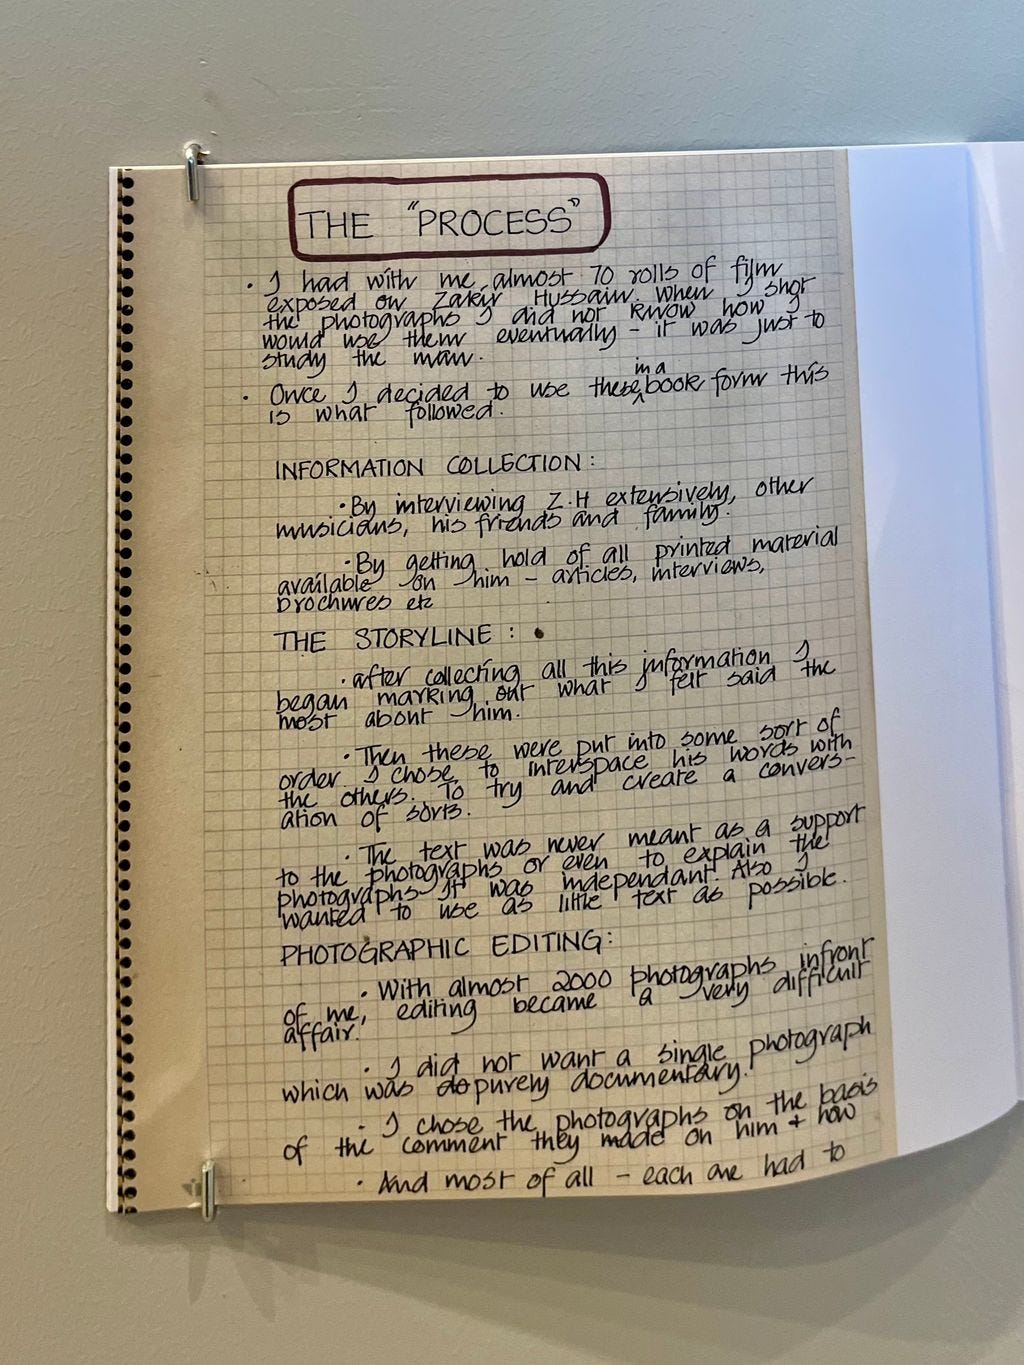 THE "PROCESS"
· I had with me almost 70 rolls of film
exposed on Zakir Hussain. When I shot
the photographs I did not know how I
would use them eventually - it was just to
study the man.
in a
· Once I decided to use these ^ book form this
is what followed.
INFORMATION COLLECTION:
· By interviewing Z.H extensively, other
musicians, his friends and family.
· By getting hold of all printed material
available on him - articles, interviews,
brochures etc
THE STORYLINE :
· after collecting all this information I
began marking out what I felt said the
most about him.
· Then these were put into some sort of
order. I chose to interspace his words with
the others. To try and create a convers-
ation of sorts.
· The text was never meant as a support
to the photographs or even to explain the
photographs. It was independant. Also I
wanted to use as little text as possible.
PHOTOGRAPHIC EDITING:
· With almost 2000 photographs infront
of me, editing became a very difficult
affair.
· I did not want a single photograph
which was purely documentary.
· I chose the photographs on the basis
of the comment they made on him + how
· And most of all - each one had to